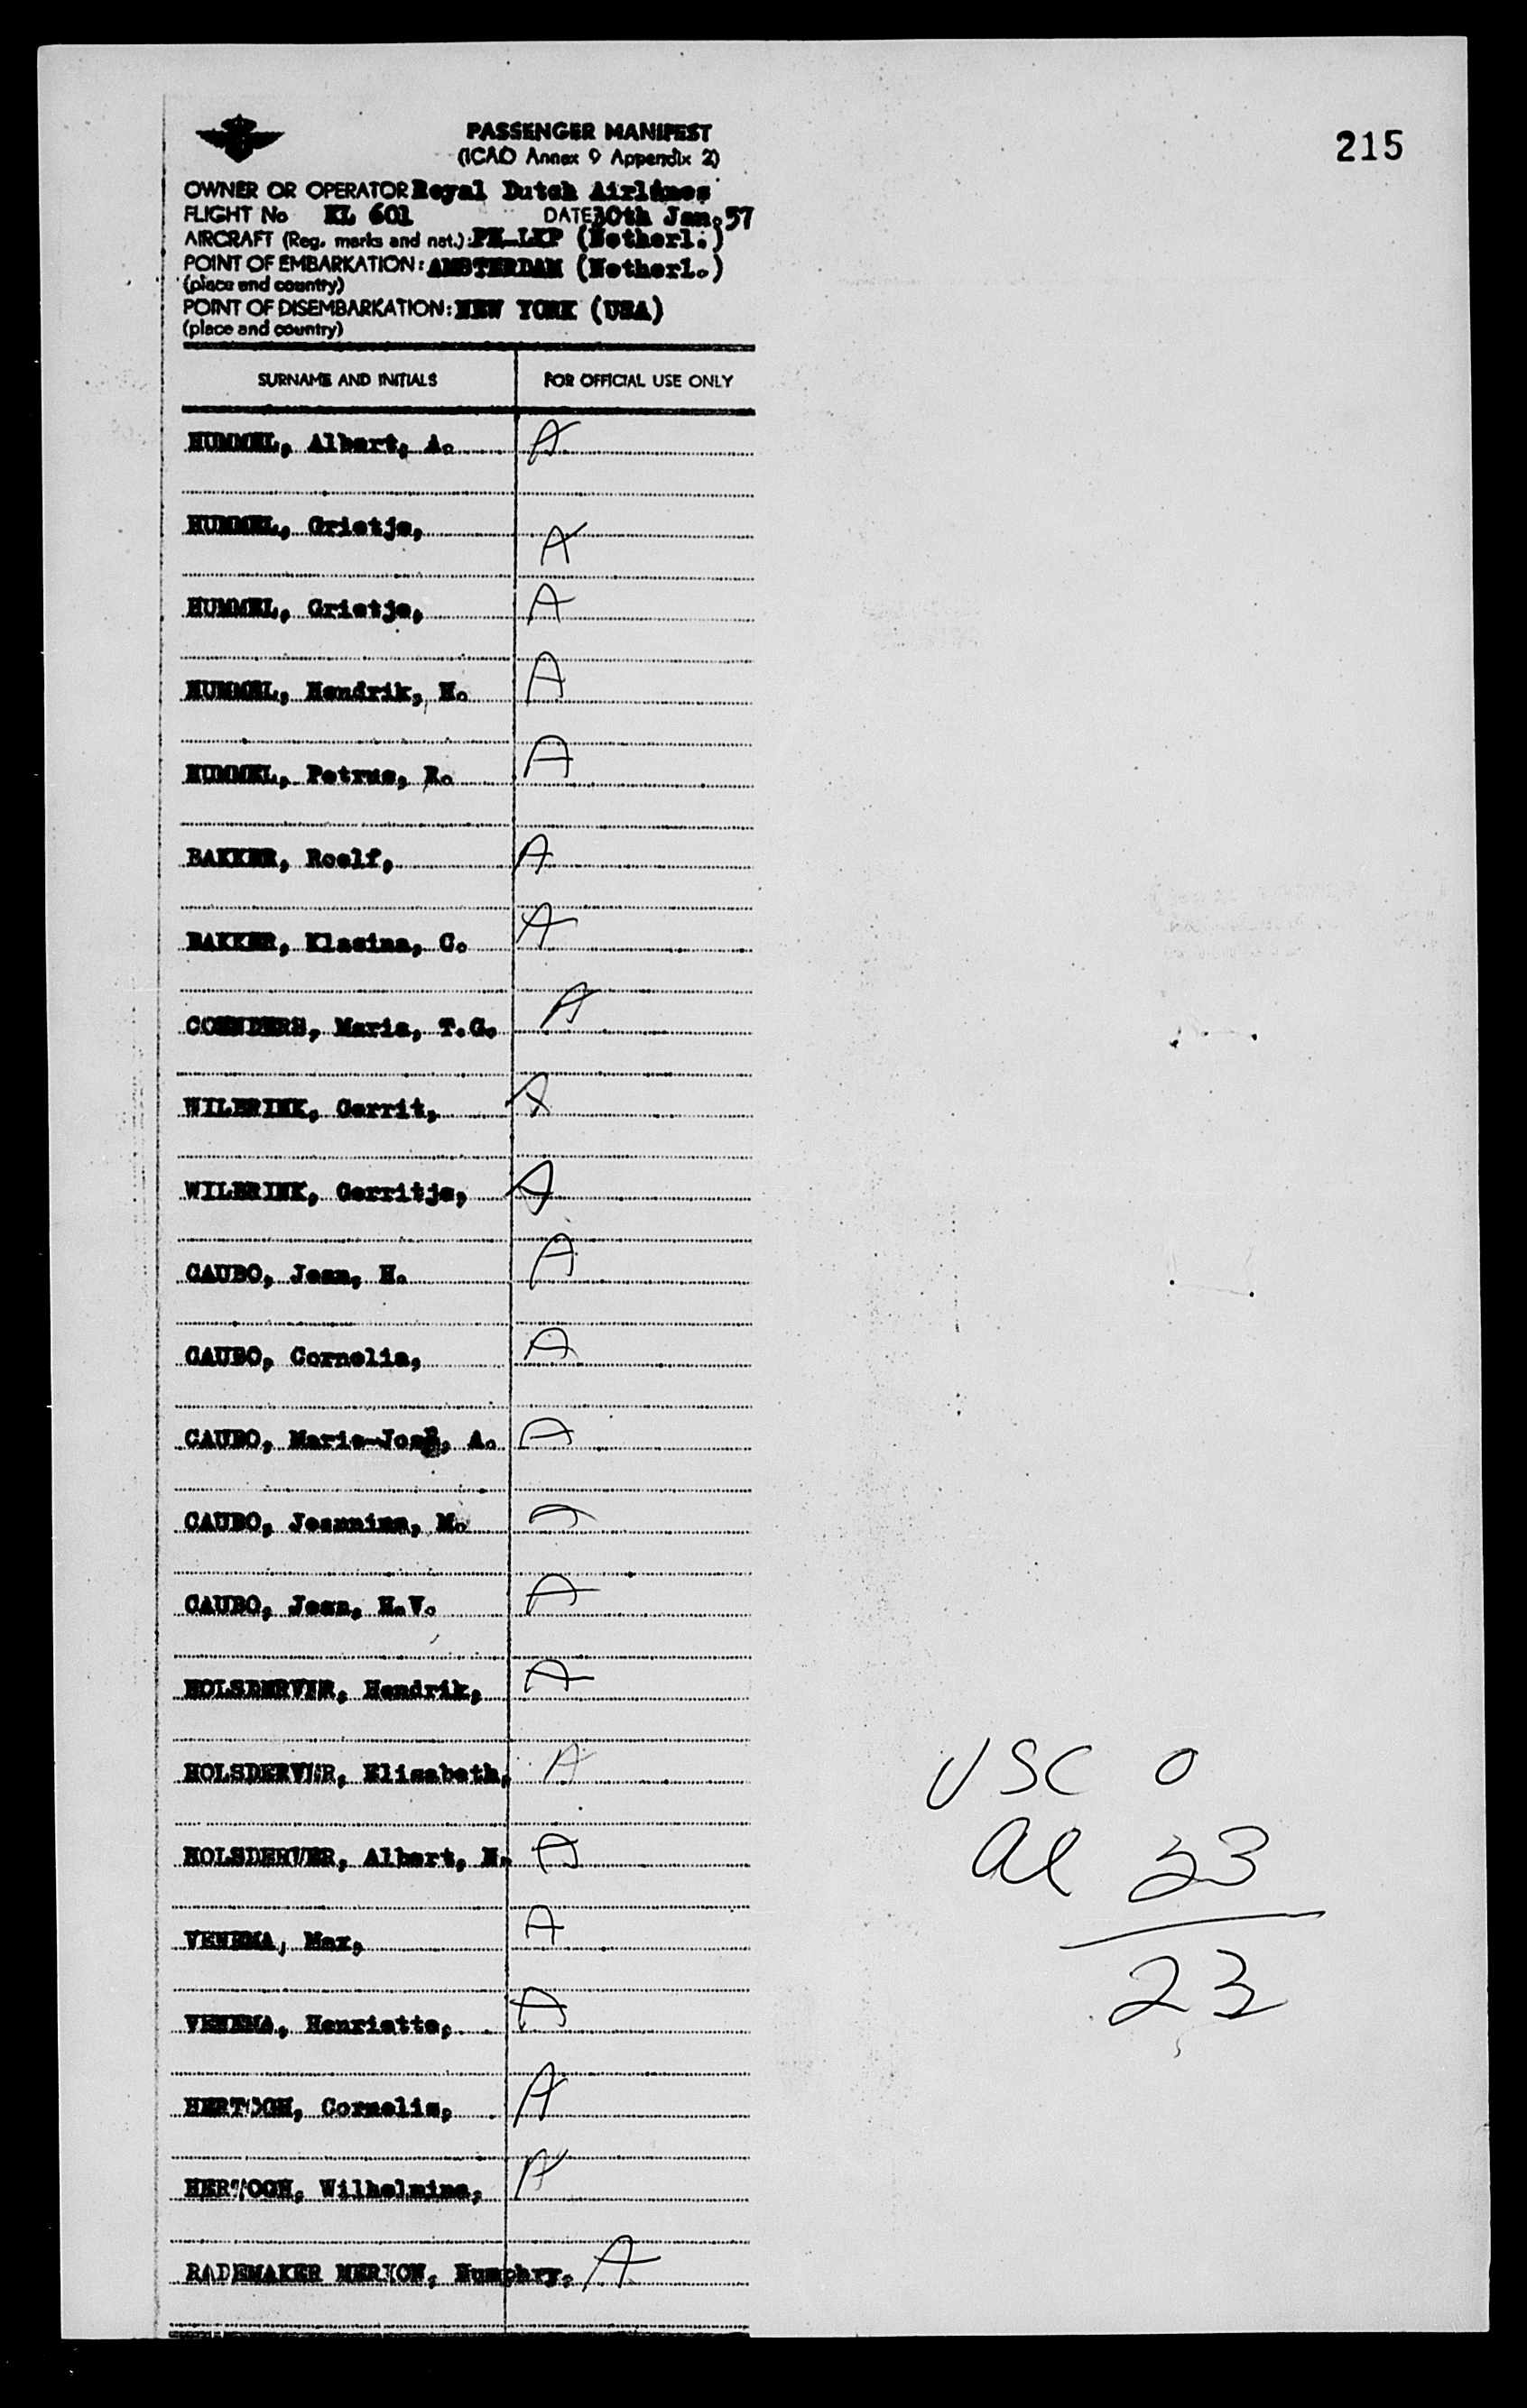 215
PASSENGER MANIFEST
(ICAO Annex 9 Appendix 2)
OWNER OR OPERATOR Royal Dutch Airlines
FLIGHT No KL 601 DATE 30th Jan. 57
AIRCRAFT (Reg. marks and nat.): PH-LKP (Netherl.)
POINT OF EMBARKATION: AMSTERDAM (Netherl.)
(place and country)
POINT OF DISEMBARKATION: NEW YORK (USA)
(place and country)
SURNAME AND INITIALS FOR OFFICIAL USE ONLY
HUMMEL, Albert, A. A
HUMMEL, Grietje, A
HUMMEL, Grietje, A
HUMMEL, Hendrik, H. A
HUMMEL, Petrus, R. A
BAKKER, Roelf, A
BAKKER, Klasina, C. A
COENDERS, Maria, T.G. A
WILBRINK, Gerrit, A
WILBRINK, Gerritje, A
CAUBO, Jean, H. A
CAUBO, Cornelia, A
CAUBO, Marie-José, A. A
CAUBO, Jeannine, M. A
CAUBO, Jean, H.V. A
HOLSDERVER, Hendrik, A
HOLSDERVER, Elisabeth, A
HOLSDERVER, Albert, H. A
VENEMA, Max, A
VENEMA, Henriette, A
HERTOGH, Cornelis, A
HERTOGH, Wilhelmina, A
RADEMAKER MERXON, Humphry, A
USC 0
al 23
23